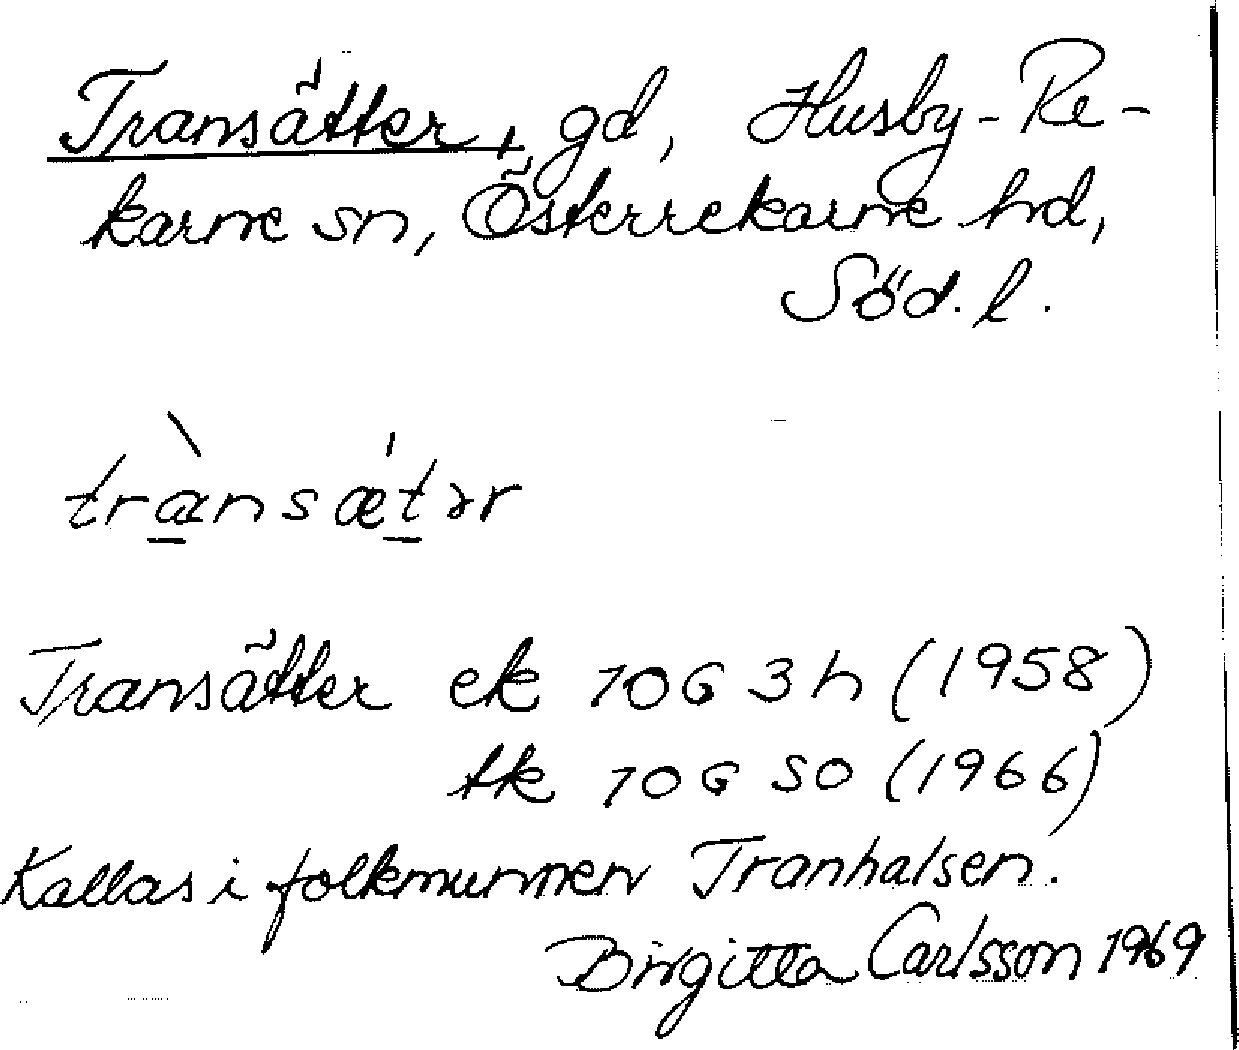 Transätter, gd, Husby-Re-
karne sn, Österrekarne hd,
Söd. l.
trànsǽtər
Transätter ek 10G 3h (1958)
tk 10G SO (1966)
Kallas i folkmunnen Tranhalsen.
Birgitta Carlsson 1969